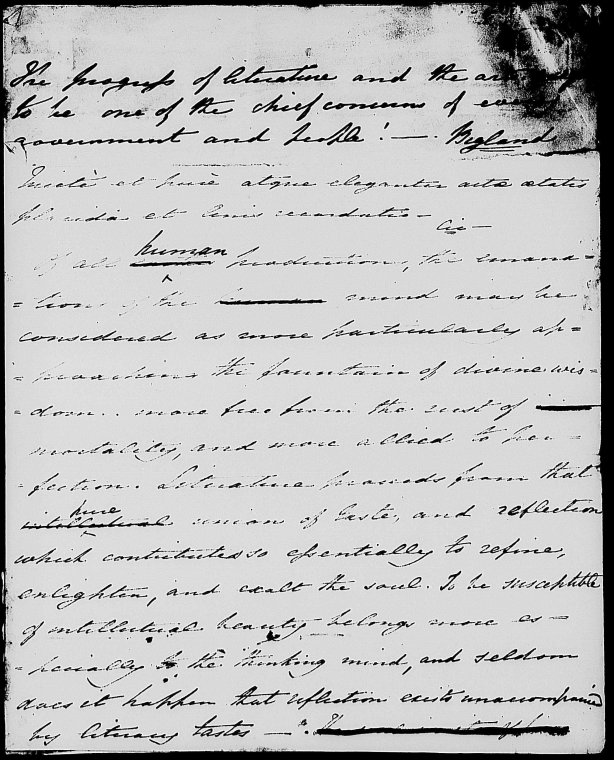 The progress of literature and the arts
to be one of the chief concerns of every
government and people! — Bigland
et pure atque eleganter actæ ætatis
placida et lenis recordatio —
Cic —
Of all human productions, the emana=
=tions of the human mind may be
considered as more particularly ap=
=proaching the fountain of divine wis=
=dom.. more free from the rust of
mortality, and more allied to per=
=fection. Literature proceeds from that
intellectual pure union of taste, and reflection
which contributes so essentially to refine,
enlighten, and exalt the soul. To be susceptible
of intellectual beauty belongs more es=
=pecially to the thinking mind, and seldom
does it happen that reflection exists unaccompanied
by literary tastes —".